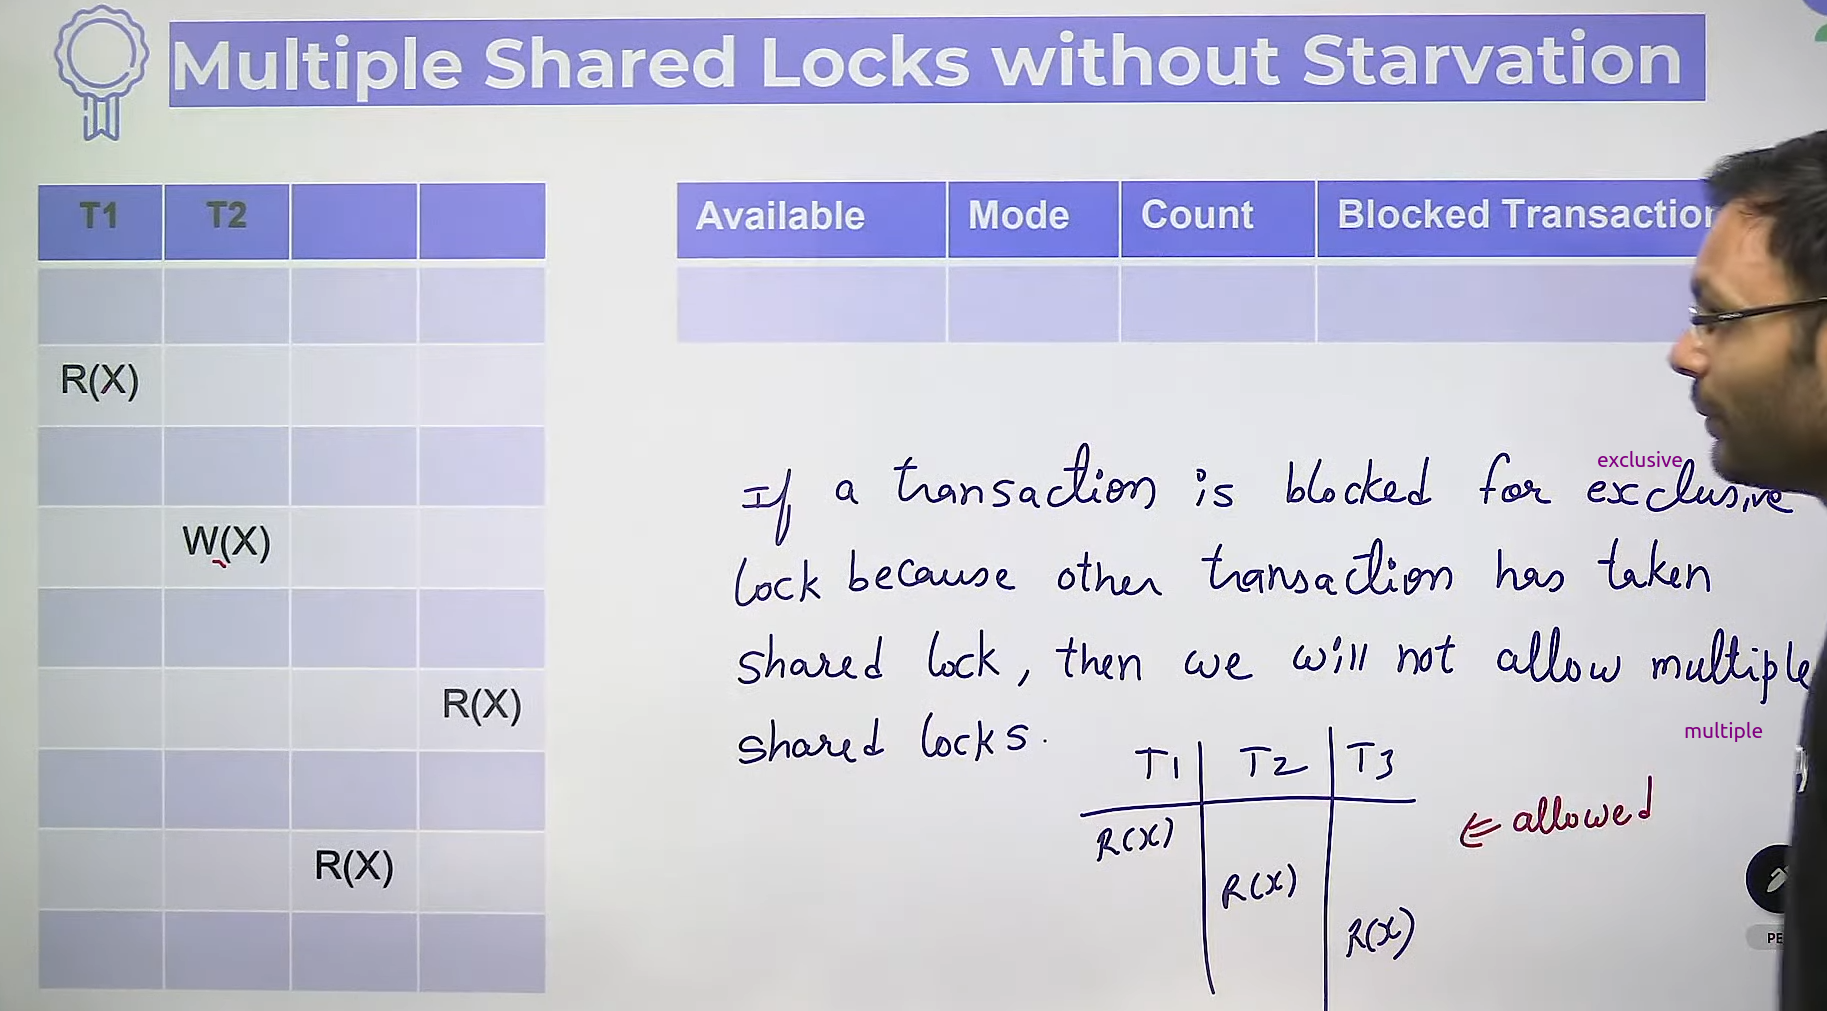 Multiple Shared Locks without Starvation
T1 T2
Available Mode Count Blocked Transaction
R(X)
W(X)
R(X)
R(X)
If a transaction is blocked for exclusive
exclusive
lock because other transaction has taken
shared lock, then we will not allow multiple
shared locks.
multiple
T1 T2 T3
R(X)
R(X)
R(X)
allowed
PE